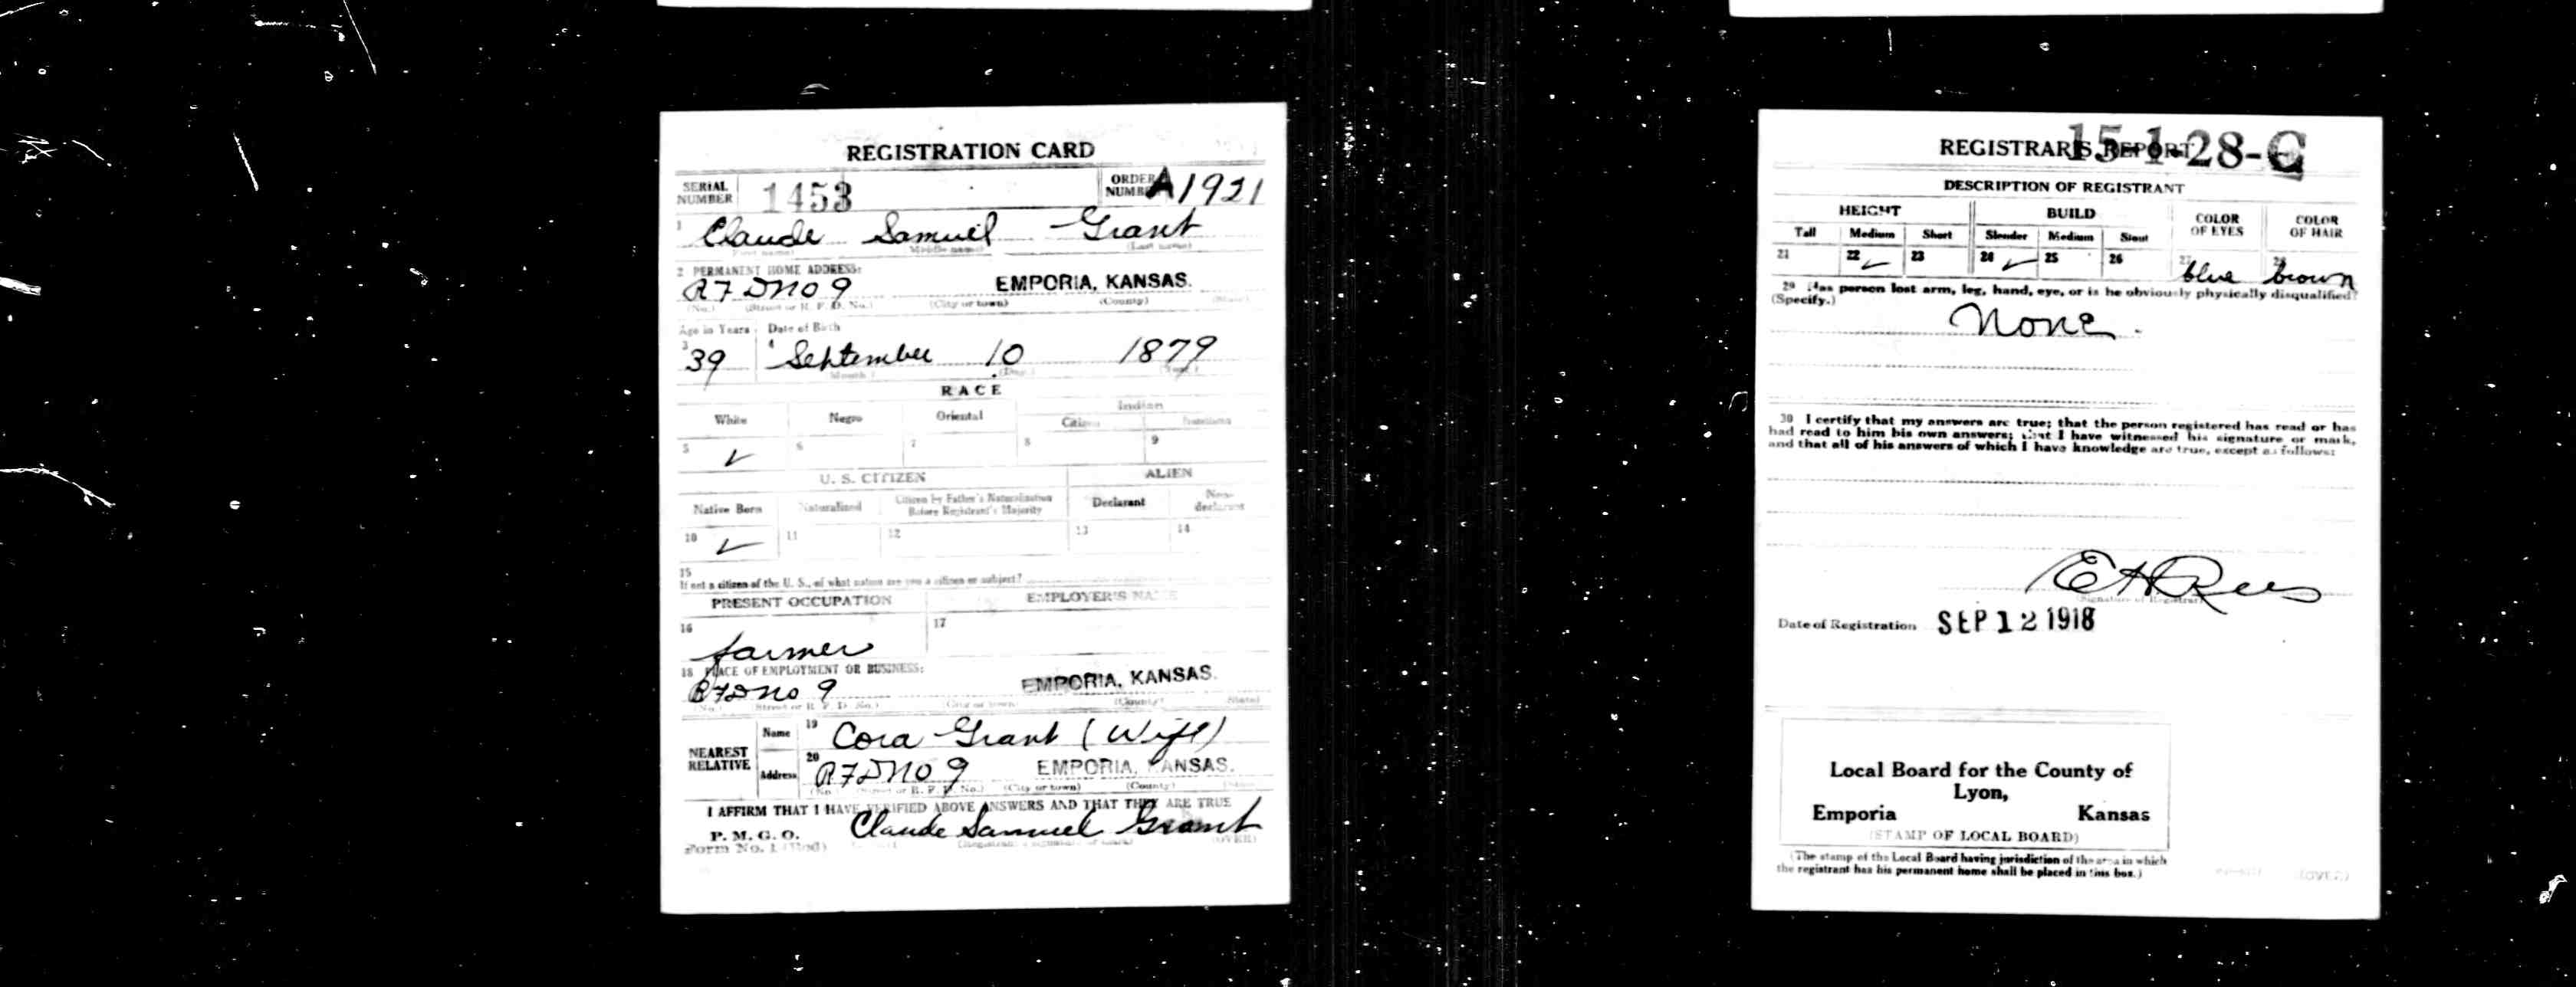 REGISTRATION CARD
SERIAL NUMBER 1453 ORDER NUMBER A1921
1 Claude Samuel Grant
(First name) (Middle name) (Last name)
2 PERMANENT HOME ADDRESS:
R7D No 9 EMPORIA, KANSAS.
(No.) (Street or R. F. D. No.) (City or town) (County) (State)
Age in Years Date of Birth
3 39 4 September 10 1879
(Month) (Day) (Year)
RACE
White Negro Oriental Indian
Citizen
5 ✓ 6 7 8 9
U. S. CITIZEN ALIEN
Native Born Naturalized Citizen by Father's Naturalization Before Registrant's Majority Declarant Non-declarant
10 ✓ 11 12 13 14
15
If not a citizen of the U. S., of what nation are you a citizen or subject?
PRESENT OCCUPATION EMPLOYER'S NAME
16 farmer 17
18 PLACE OF EMPLOYMENT OR BUSINESS:
R7D No 9 EMPORIA, KANSAS.
(No.) (Street or R. F. D. No.) (City or town) (County) (State)
NEAREST RELATIVE
Name 19 Cora Grant (Wife)
Address 20 R7D No 9 EMPORIA, KANSAS.
(No.) (Street or R. F. D. No.) (City or town) (County)
I AFFIRM THAT I HAVE VERIFIED ABOVE ANSWERS AND THAT THEY ARE TRUE
P. M. G. O.
Form No. 1 (Red) Claude Samuel Grant
(Registrant's signature or mark) (OVER)
REGISTRAR'S REPORT 15-1-28-C
DESCRIPTION OF REGISTRANT
HEIGHT BUILD COLOR OF EYES COLOR OF HAIR
Tall Medium Short Slender Medium Stout
21 22 ✓ 23 24 ✓ 25 26 27 blue 28 brown
29 Has person lost arm, leg, hand, eye, or is he obviously physically disqualified?
(Specify.)
None.
30 I certify that my answers are true; that the person registered has read or has
had read to him his own answers; that I have witnessed his signature or mark,
and that all of his answers of which I have knowledge are true, except as follows:
E H Rees
(Signature of Registrar)
Date of Registration SEP 12 1918
Local Board for the County of
Lyon,
Emporia Kansas
(STAMP OF LOCAL BOARD)
(The stamp of the Local Board having jurisdiction of the area in which
the registrant has his permanent home shall be placed in this box.)
(OVER)